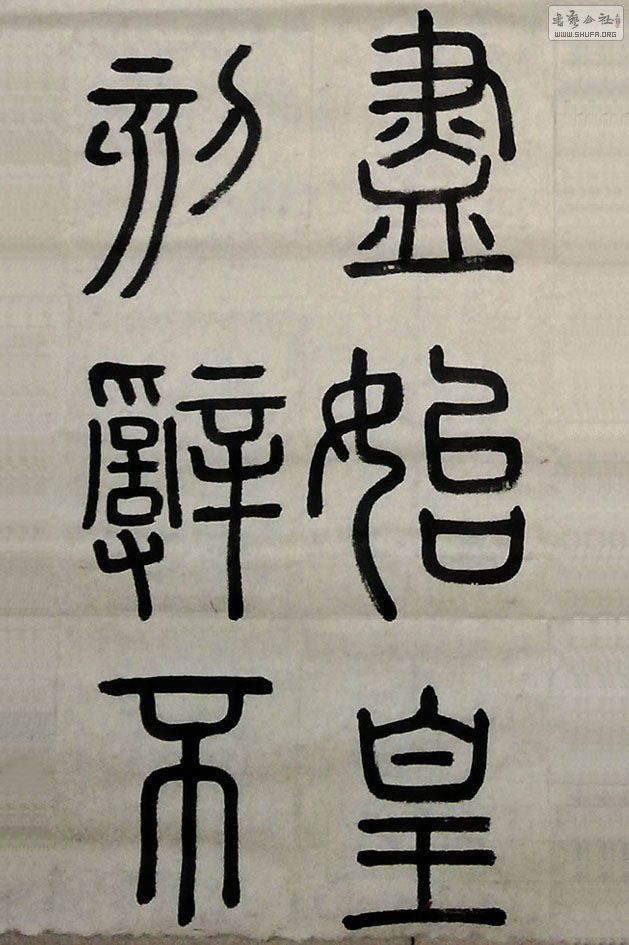 盡始皇
刻辭不
書藝公社
WWW.SHUFA.ORG